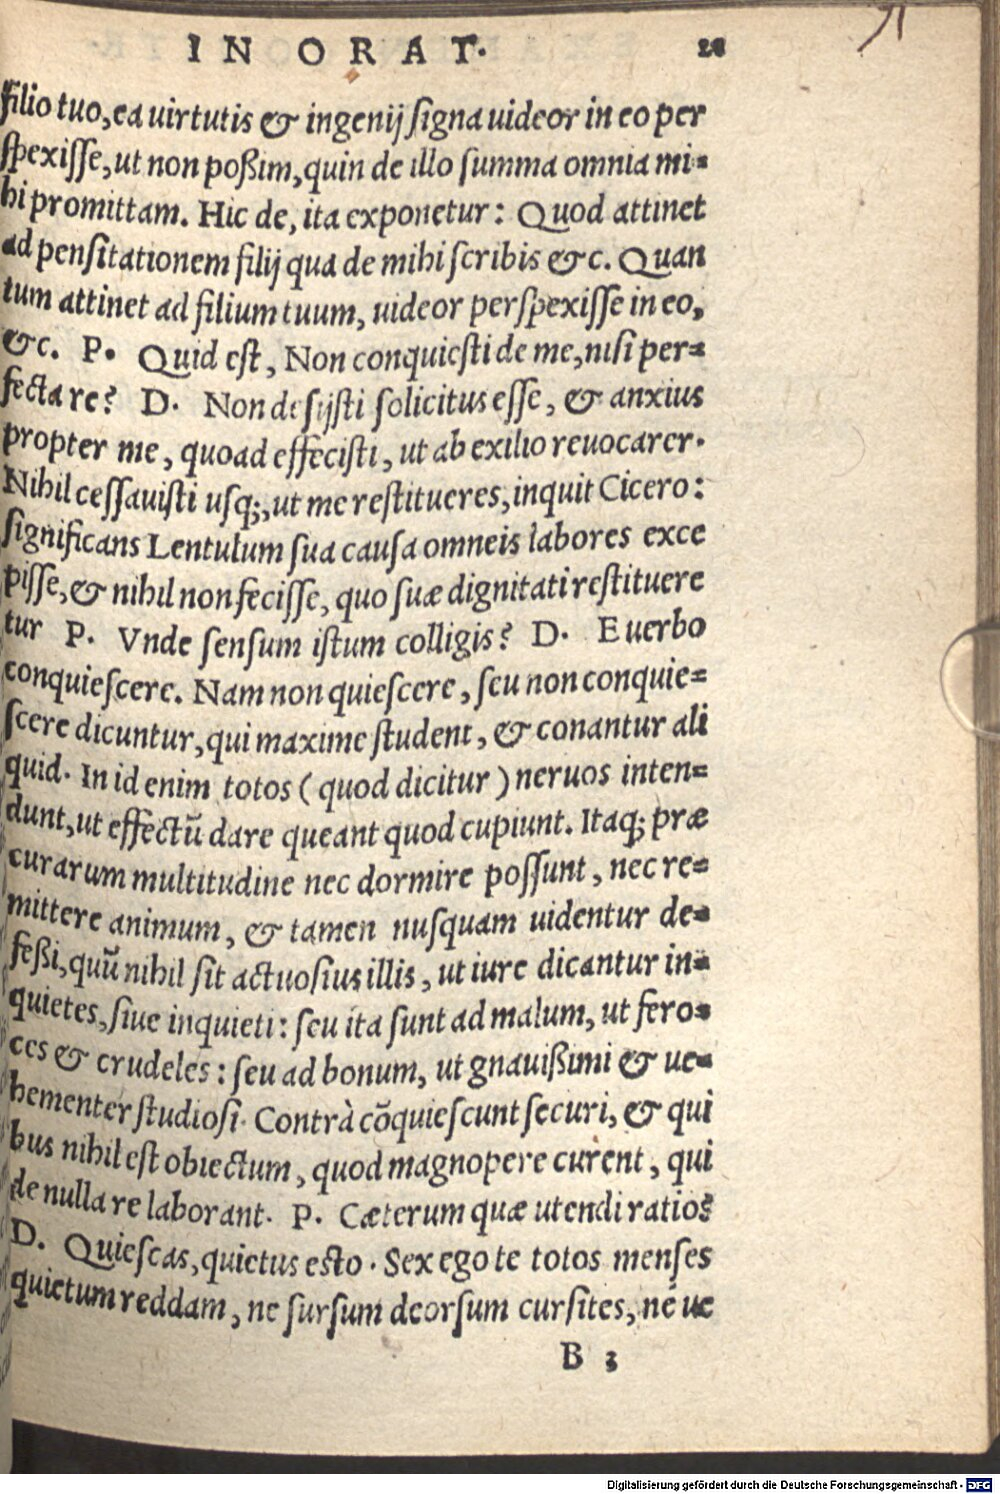 71
IN ORAT.
filio tuo, ea uirtutis & ingenij ſigna uideor in eo per
ſpexiſſe, ut non poßim, quin de illo ſumma omnia mi-
hi promittam. Hic de, ita exponetur: Quod attinet
ad penſitationem filij qua de mihi ſcribis &c. Quan
tum attinet ad filium tuum, uideor perſpexiſſe in eo,
&c. P. Quid eſt, Non conquieſti de me, niſi per-
fecta re? D. Non deſijſti ſolicitus eſſe, & anxius
propter me, quoad effeciſti, ut ab exilio reuocarer.
Nihil ceſſauiſti uſq;, ut me reſtitueres, inquit Cicero:
ſignificans Lentulum ſua cauſa omneis labores exce
piſſe, & nihil non feciſſe, quo ſuæ dignitati reſtituere
tur P. Vnde ſenſum iſtum colligis? D. E uerbo
conquieſcere. Nam non quieſcere, ſeu non conquie-
ſcere dicuntur, qui maxime ſtudent, & conantur ali
quid. In id enim totos (quod dicitur) neruos inten-
dunt, ut effectũ dare queant quod cupiunt. Itaq; præ
curarum multitudine nec dormire poſſunt, nec re-
mittere animum, & tamen nuſquam uidentur de-
feßi, quũ nihil ſit actuoſius illis, ut iure dicantur in-
quietes, ſiue inquieti: ſeu ita ſunt ad malum, ut fero-
ces & crudeles: ſeu ad bonum, ut gnauißimi & ue-
hementer ſtudioſi. Contrà cõquieſcunt ſecuri, & qui
bus nihil eſt obiectum, quod magnopere curent, qui
de nulla re laborant. P. Cæterum quæ utendi ratio?
D. Quieſcas, quietus eſto. Sex ego te totos menſes
quietum reddam, ne ſurſum deorſum curſites, né ue
B 3
Digitalisierung gefördert durch die Deutsche Forschungsgemeinschaft - DFG